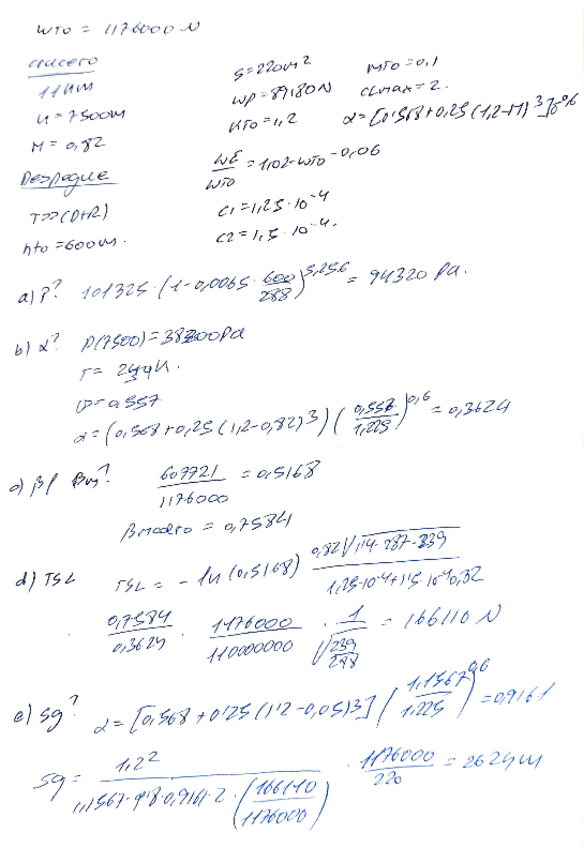 WTO = 1176000 N
crucero
11 km
H = 7500m
M = 0,82
Despegue
T>>(D+R)
hto = 600m.
S = 220m²
WP = 89180N
KTO = 1,2
MTO = 0,1
CLmax = 2.
α = [0'568 + 0,25 (1,2-M)³] σ^0,6
WE/WTO = 1,02 · WTO^-0,06
C1 = 1,25 · 10^-4
C2 = 1,5 · 10^-4.
a) P? 101325 · (1 - 0,0065 · 600/288)^5,256 = 94320 Pa.
b) α? P(7500) = 38300Pa
T = 239 K.
ρ = 0,557
α = (0,568 + 0,25 (1,2 - 0,82)³) (0,557/1,225)^0,6 = 0,3624
c) β? 607721/1176000 = 0,5168
βmedio = 0,7584
d) TSL TSL = - ln (0,5168) 0,82√(1'4 · 287 · 239) / (1,25·10^-4 + 1'5·10^-4·0,82)
0,7584/0,3624 · 1176000/110000000 · 1/√(239/288) = 166110 N
e) Sg? α = [0,568 + 0'25 (1'2 - 0,05)³] (1,1567/1,225)^0,6 = 0,9161
Sg = 1,2² / (1,1567 · 9'8 · 0,9161 · 2 · (166110/1176000)) · 1176000/220 = 2624 m